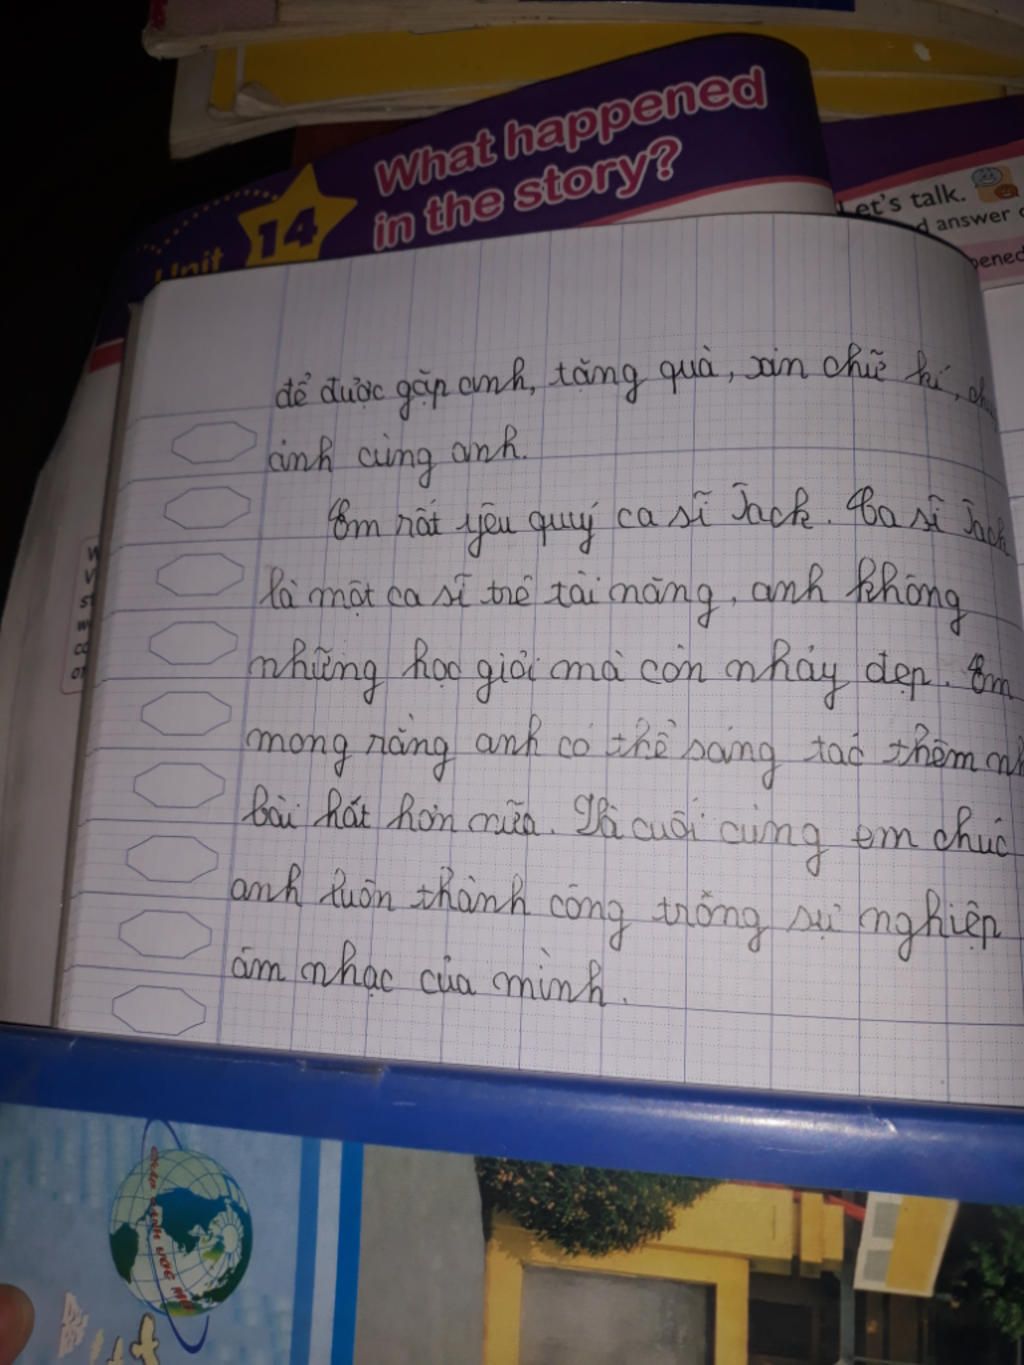 What happened
in the story?
Unit 14
Let's talk.
d answer
pened
để được gặp anh, tặng quà, xin chữ kí,
ảnh cùng anh.
Em rất yêu quý ca sĩ Jack. Ca sĩ Jack
là một ca sĩ trẻ tài năng, anh không
những học giỏi mà còn nhảy đẹp. Em
mong rằng anh có thể sáng tác thêm nh
bài hát hơn nữa. Và cuối cùng em chúc
anh luôn thành công trông sự nghiệp
âm nhạc của mình.